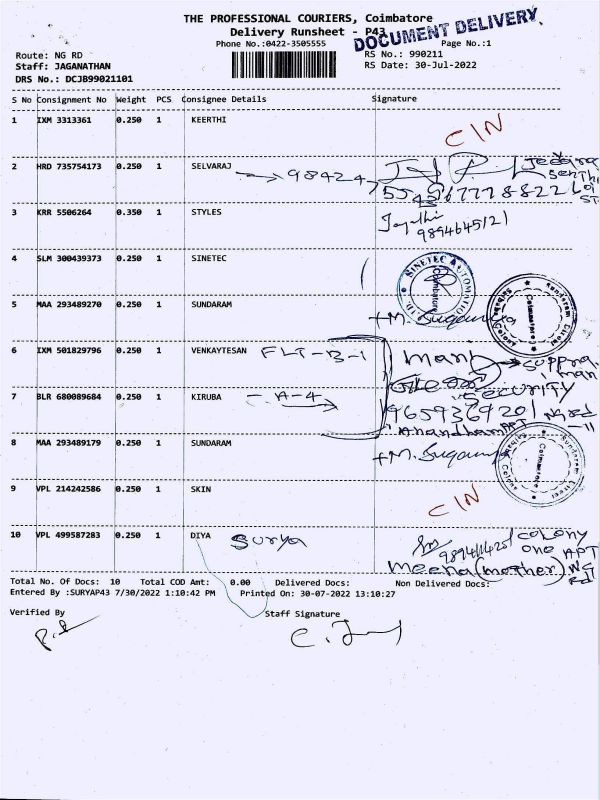 THE PROFESSIONAL COURIERS, Coimbatore
Delivery Runsheet - P43
DOCUMENT DELIVERY
Phone No.:0422-3505555
Page No.:1
Route: NG RD
RS No.: 990211
Staff: JAGANATHAN
RS Date: 30-Jul-2022
DRS No.: DCJB99021101
S No Consignment No Weight PCS Consignee Details Signature
1 IXM 3313361 0.250 1 KEERTHI
C/N
2 HRD 735754173 0.250 1 SELVARAJ
98424
3 KRR 5506264 0.350 1 STYLES
9894645121
4 SLM 300439373 0.250 1 SINETEC
SINETEC AUTOMATION
Coimbatore
5 MAA 293489270 0.250 1 SUNDARAM
Sundaram Direct
Coimbatore
6 IXM 501829796 0.250 1 VENKAYTESAN FLT-B-1
Mani
7 BLR 680089684 0.250 1 KIRUBA - A-4
SECURITY
9659369201 NG rd
Anandham APT - 11
8 MAA 293489179 0.250 1 SUNDARAM
Sundaram Direct
Coimbatore
9 VPL 214242586 0.250 1 SKIN
C/N
10 VPL 499587283 0.250 1 DIYA Surya
COLONY
one APT
Meena (mother) NG
Rd
Total No. Of Docs: 10 Total COD Amt: 0.00 Delivered Docs: Non Delivered Docs:
Entered By :SURYAP43 7/30/2022 1:10:42 PM Printed On: 30-07-2022 13:10:27
Verified By Staff Signature